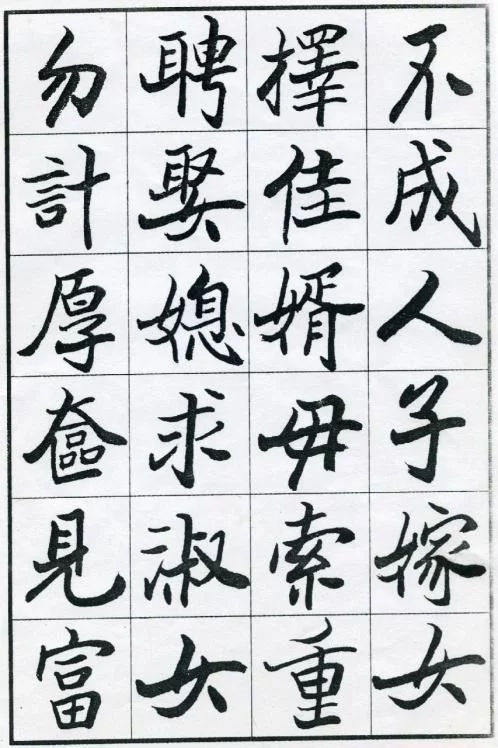 不成人子嫁女
擇佳婿毋索重
聘娶媳求淑女
勿計厚奩見富